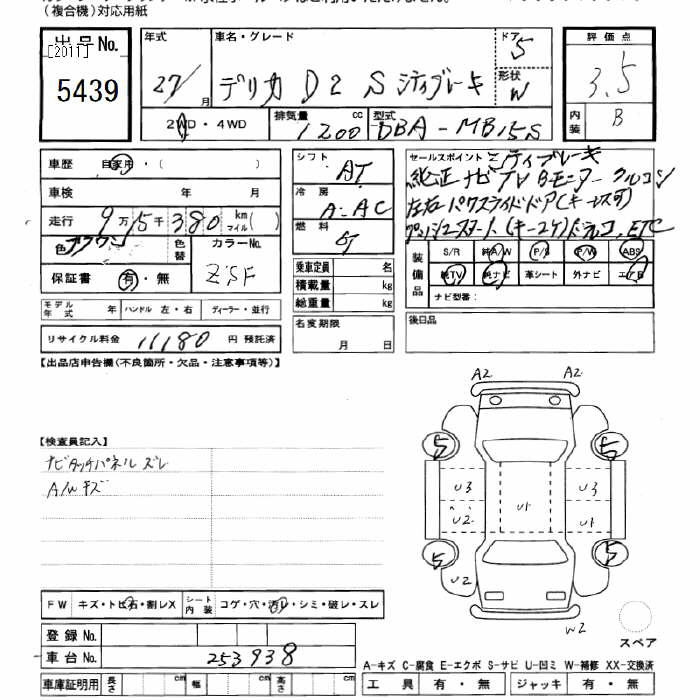 (複合機)対応用紙
出品No.
[2011]
5439
年式 27/ 月
車名・グレード デリカ D2 S シティブレーキ
ドア 5
形状 W
2WD・4WD
排気量 1200 cc
型式 DBA-MB15S
評価点 3.5
内装 B
車歴 自家用・( )
車検 年 月
走行 9万5千380 km マイル( )
色 ブラウン 色替 カラーNo. ZSF
保証書 有・無
モデル年式 年 ハンドル 左・右 ディーラー・並行
リサイクル料金 11180 円 預託済
シフト AT
冷房 A-AC
燃料 G
乗車定員 名
積載量 kg
総重量 kg
名変期限 月 日
セールスポイント シティブレーキ
純正 ナビ TV Bモニター クルコン
左右パワースライドドア(キーレス可)
プッシュスタート(キー2ケ)ドラレコ, ETC
装備品 S/R 純A/W P/S P/W ABS
純TV 純ナビ 革シート 外ナビ エアB
ナビ型番:
後日品
【出品店申告欄(不良箇所・欠品・注意事項等)】
【検査員記入】
ナビタッチパネル ズレ
A/W キズ
A2 A2
5 5
U3 U3
U2 U1 U1
5 5
U2
W2
スペア
FW キズ・トビ石・割レX シート内装 コゲ・穴・汚レ・シミ・破レ・スレ
登録No.
車台No. 253938
車庫証明用 長さ cm 幅 cm 高さ cm
A-キズ C-腐食 E-エクボ S-サビ U-凹ミ W-補修 XX-交換済
工具 有・無 ジャッキ 有・無